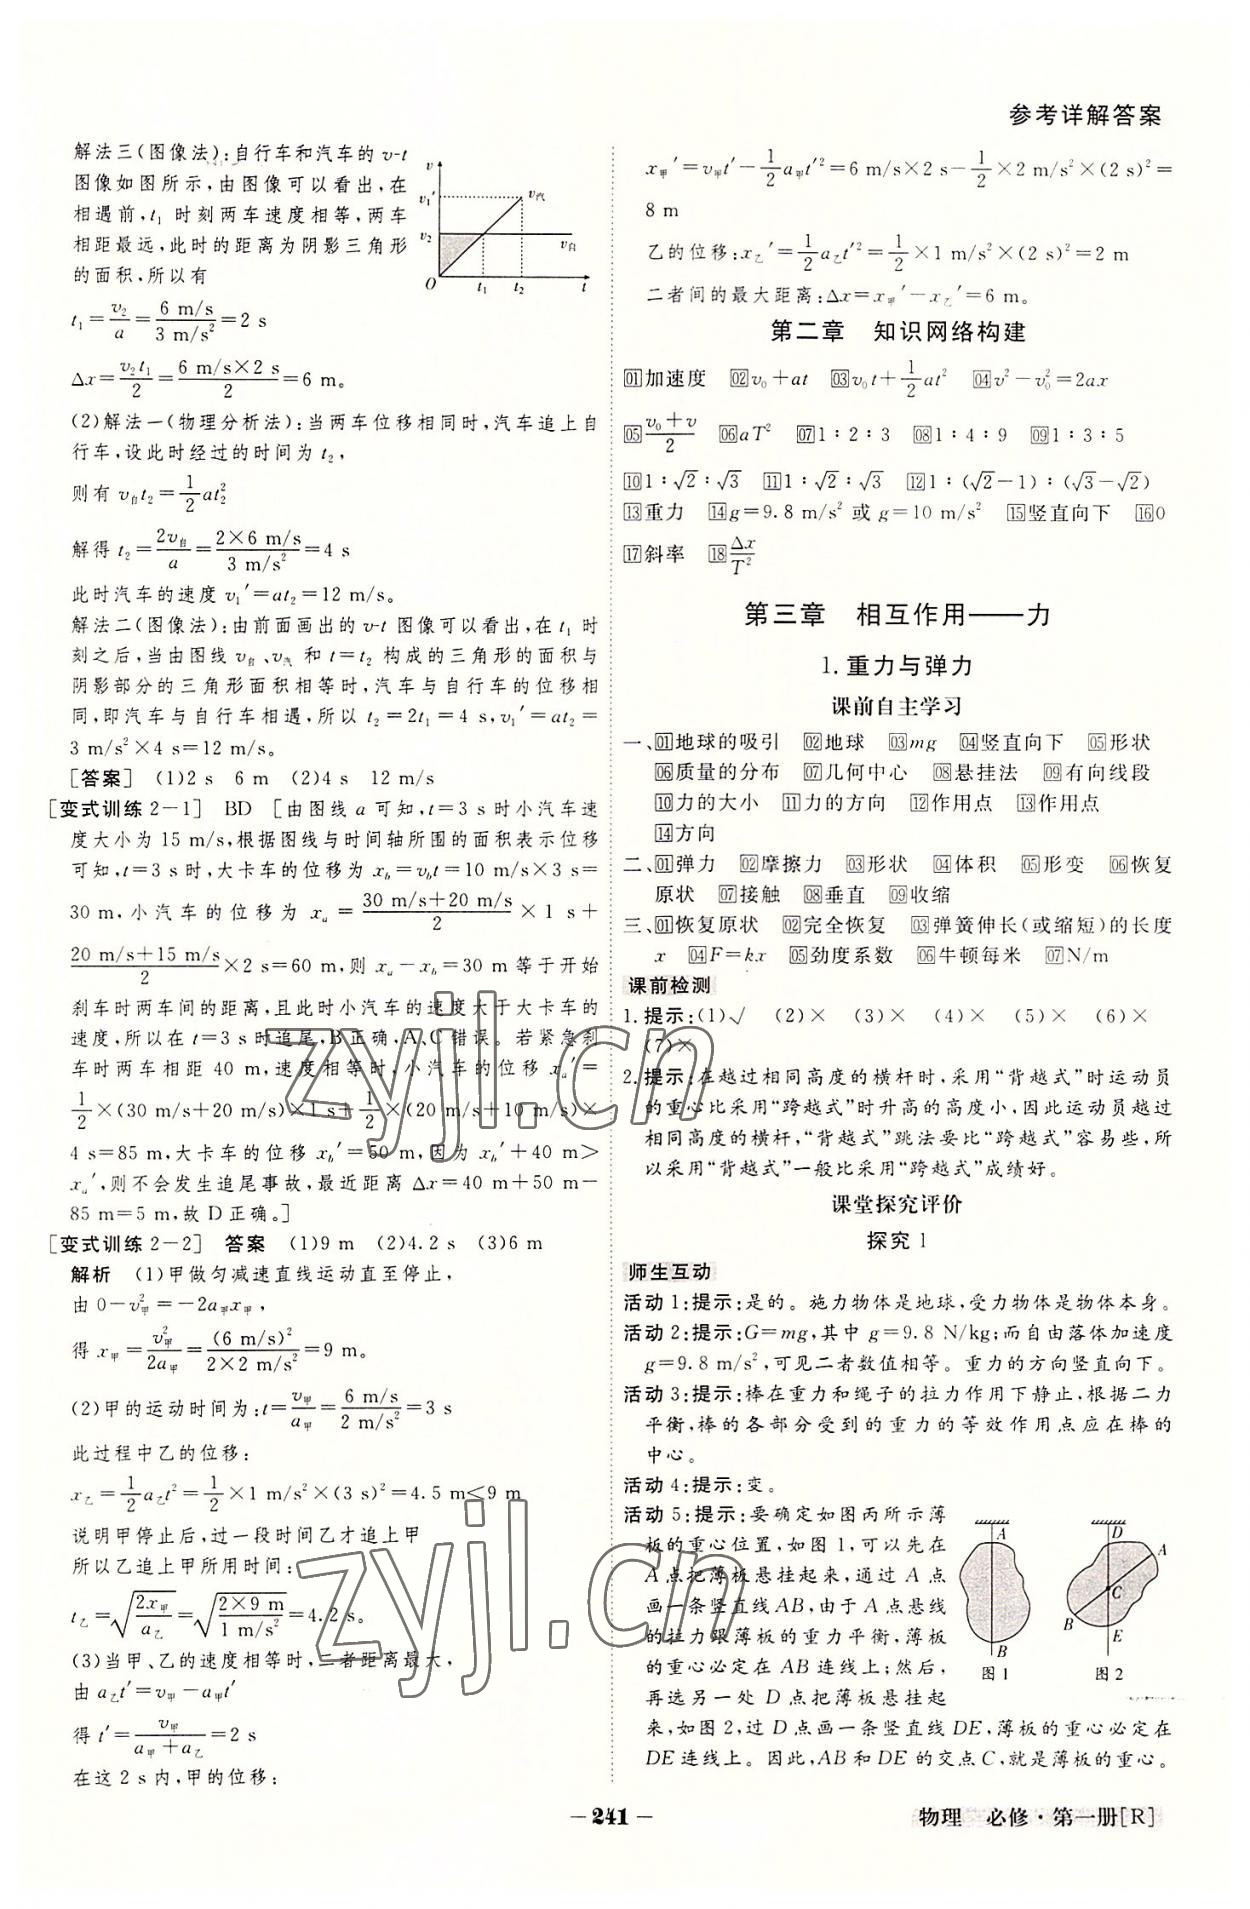 参考详解答案
解法三(图像法):自行车和汽车的 v-t
图像如图所示,由图像可以看出,在
相遇前,t₁ 时刻两车速度相等,两车
相距最远,此时的距离为阴影三角形
的面积,所以有
v
v₁′
v汽
v₂
v自
O
t₁
t₂
t
t₁=v₂/a=(6 m/s)/(3 m/s²)=2 s
Δx=v₂t₁/2=(6 m/s×2 s)/2=6 m。
(2)解法一(物理分析法):当两车位移相同时,汽车追上自
行车,设此时经过的时间为 t₂,
则有 v自t₂=1/2at₂²
解得 t₂=2v自/a=(2×6 m/s)/(3 m/s²)=4 s
此时汽车的速度 v₁′=at₂=12 m/s。
解法二(图像法):由前面画出的 v-t 图像可以看出,在 t₁ 时
刻之后,当由图线 v自、v汽 和 t=t₂ 构成的三角形的面积与
阴影部分的三角形面积相等时,汽车与自行车的位移相
同,即汽车与自行车相遇,所以 t₂=2t₁=4 s,v₁′=at₂=
3 m/s²×4 s=12 m/s。
[答案] (1)2 s 6 m (2)4 s 12 m/s
[变式训练2-1] BD [由图线 a 可知,t=3 s 时小汽车速
度大小为 15 m/s,根据图线与时间轴所围的面积表示位移
可知,t=3 s 时,大卡车的位移为 x_b=v_bt=10 m/s×3 s=
30 m,小汽车的位移为 x_a=(30 m/s+20 m/s)/2×1 s+
(20 m/s+15 m/s)/2×2 s=60 m,则 x_a-x_b=30 m 等于开始
刹车时两车间的距离,且此时小汽车的速度大于大卡车的
速度,所以在 t=3 s 时追尾,B 正确,A、C 错误。若紧急刹
车时两车相距 40 m,速度相等时,小汽车的位移 x_a′=
1/2×(30 m/s+20 m/s)×1 s+1/2×(20 m/s+10 m/s)×
4 s=85 m,大卡车的位移 x_b′=50 m,因为 x_b′+40 m>
x_a′,则不会发生追尾事故,最近距离 Δx=40 m+50 m-
85 m=5 m,故 D 正确。]
[变式训练2-2] 答案 (1)9 m (2)4.2 s (3)6 m
解析 (1)甲做匀减速直线运动直至停止,
由 0-v甲²=-2a甲x甲,
得 x甲=v甲²/2a甲=(6 m/s)²/(2×2 m/s²)=9 m。
(2)甲的运动时间为:t=v甲/a甲=(6 m/s)/(2 m/s²)=3 s
此过程中乙的位移:
x乙=1/2a乙t²=1/2×1 m/s²×(3 s)²=4.5 m≤9 m
说明甲停止后,过一段时间乙才追上甲
所以乙追上甲所用时间:
t乙=√(2x甲/a乙)=√(2×9 m/1 m/s²)=4.2 s。
(3)当甲、乙的速度相等时,二者距离最大,
由 a乙t′=v甲-a甲t′
得 t′=v甲/(a甲+a乙)=2 s
在这 2 s 内,甲的位移:
x甲′=v甲t′-1/2a甲t′²=6 m/s×2 s-1/2×2 m/s²×(2 s)²=
8 m
乙的位移:x乙′=1/2a乙t′²=1/2×1 m/s²×(2 s)²=2 m
二者间的最大距离:Δx=x甲′-x乙′=6 m。
第二章 知识网络构建
01加速度 02v₀+at 03v₀t+1/2at² 04v²-v₀²=2ax
05(v₀+v)/2 06aT² 071∶2∶3 081∶4∶9 091∶3∶5
101∶√2∶√3 111∶√2∶√3 121∶(√2-1)∶(√3-√2)
13重力 14g=9.8 m/s² 或 g=10 m/s² 15竖直向下 160
17斜率 18Δx/T²
第三章 相互作用——力
1.重力与弹力
课前自主学习
一、01地球的吸引 02地球 03mg 04竖直向下 05形状
06质量的分布 07几何中心 08悬挂法 09有向线段
10力的大小 11力的方向 12作用点 13作用点
14方向
二、01弹力 02摩擦力 03形状 04体积 05形变 06恢复
原状 07接触 08垂直 09收缩
三、01恢复原状 02完全恢复 03弹簧伸长(或缩短)的长度
x 04F=kx 05劲度系数 06牛顿每米 07N/m
课前检测
1.提示:(1)√ (2)× (3)× (4)× (5)× (6)×
(7)×
2.提示:在越过相同高度的横杆时,采用“背越式”时运动员
的重心比采用“跨越式”时升高的高度小,因此运动员越过
相同高度的横杆,“背越式”跳法要比“跨越式”容易些,所
以采用“背越式”一般比采用“跨越式”成绩好。
课堂探究评价
探究1
师生互动
活动1:提示:是的。施力物体是地球,受力物体是物体本身。
活动2:提示:G=mg,其中 g=9.8 N/kg;而自由落体加速度
g=9.8 m/s²,可见二者数值相等。重力的方向竖直向下。
活动3:提示:棒在重力和绳子的拉力作用下静止,根据二力
平衡,棒的各部分受到的重力的等效作用点应在棒的
中心。
活动4:提示:变。
活动5:提示:要确定如图丙所示薄
板的重心位置,如图1,可以先在
A 点把薄板悬挂起来,通过 A 点
画一条竖直线 AB,由于 A 点悬线
的拉力跟薄板的重力平衡,薄板
的重心必定在 AB 连线上;然后,
再选另一处 D 点把薄板悬挂起
来,如图2,过 D 点画一条竖直线 DE,薄板的重心必定在
DE连线上。因此,AB 和 DE 的交点 C,就是薄板的重心。
A
B
图1
D
A
C
B
E
图2
zyjl.cn
zyjl.cn
－241－
物理 必修·第一册[R]